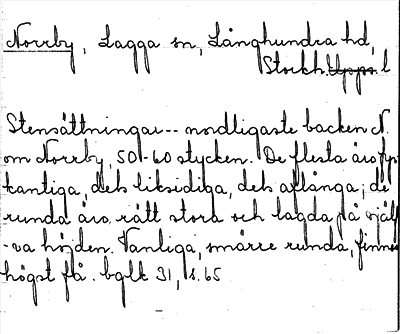 Norrby, Lagga sn, Långhundra hd,
Stockh. Upps. l
Stensättningar -- nordligaste backen N.
om Norrby, 50-60 stycken. De flesta äro fyr-
kantiga, dels liksidiga, dels aflånga; de
runda äro rätt stora och lagda på själf-
-va höjden. Vanliga, smärre runda, finnas
högst få. bglk 31, s. 65